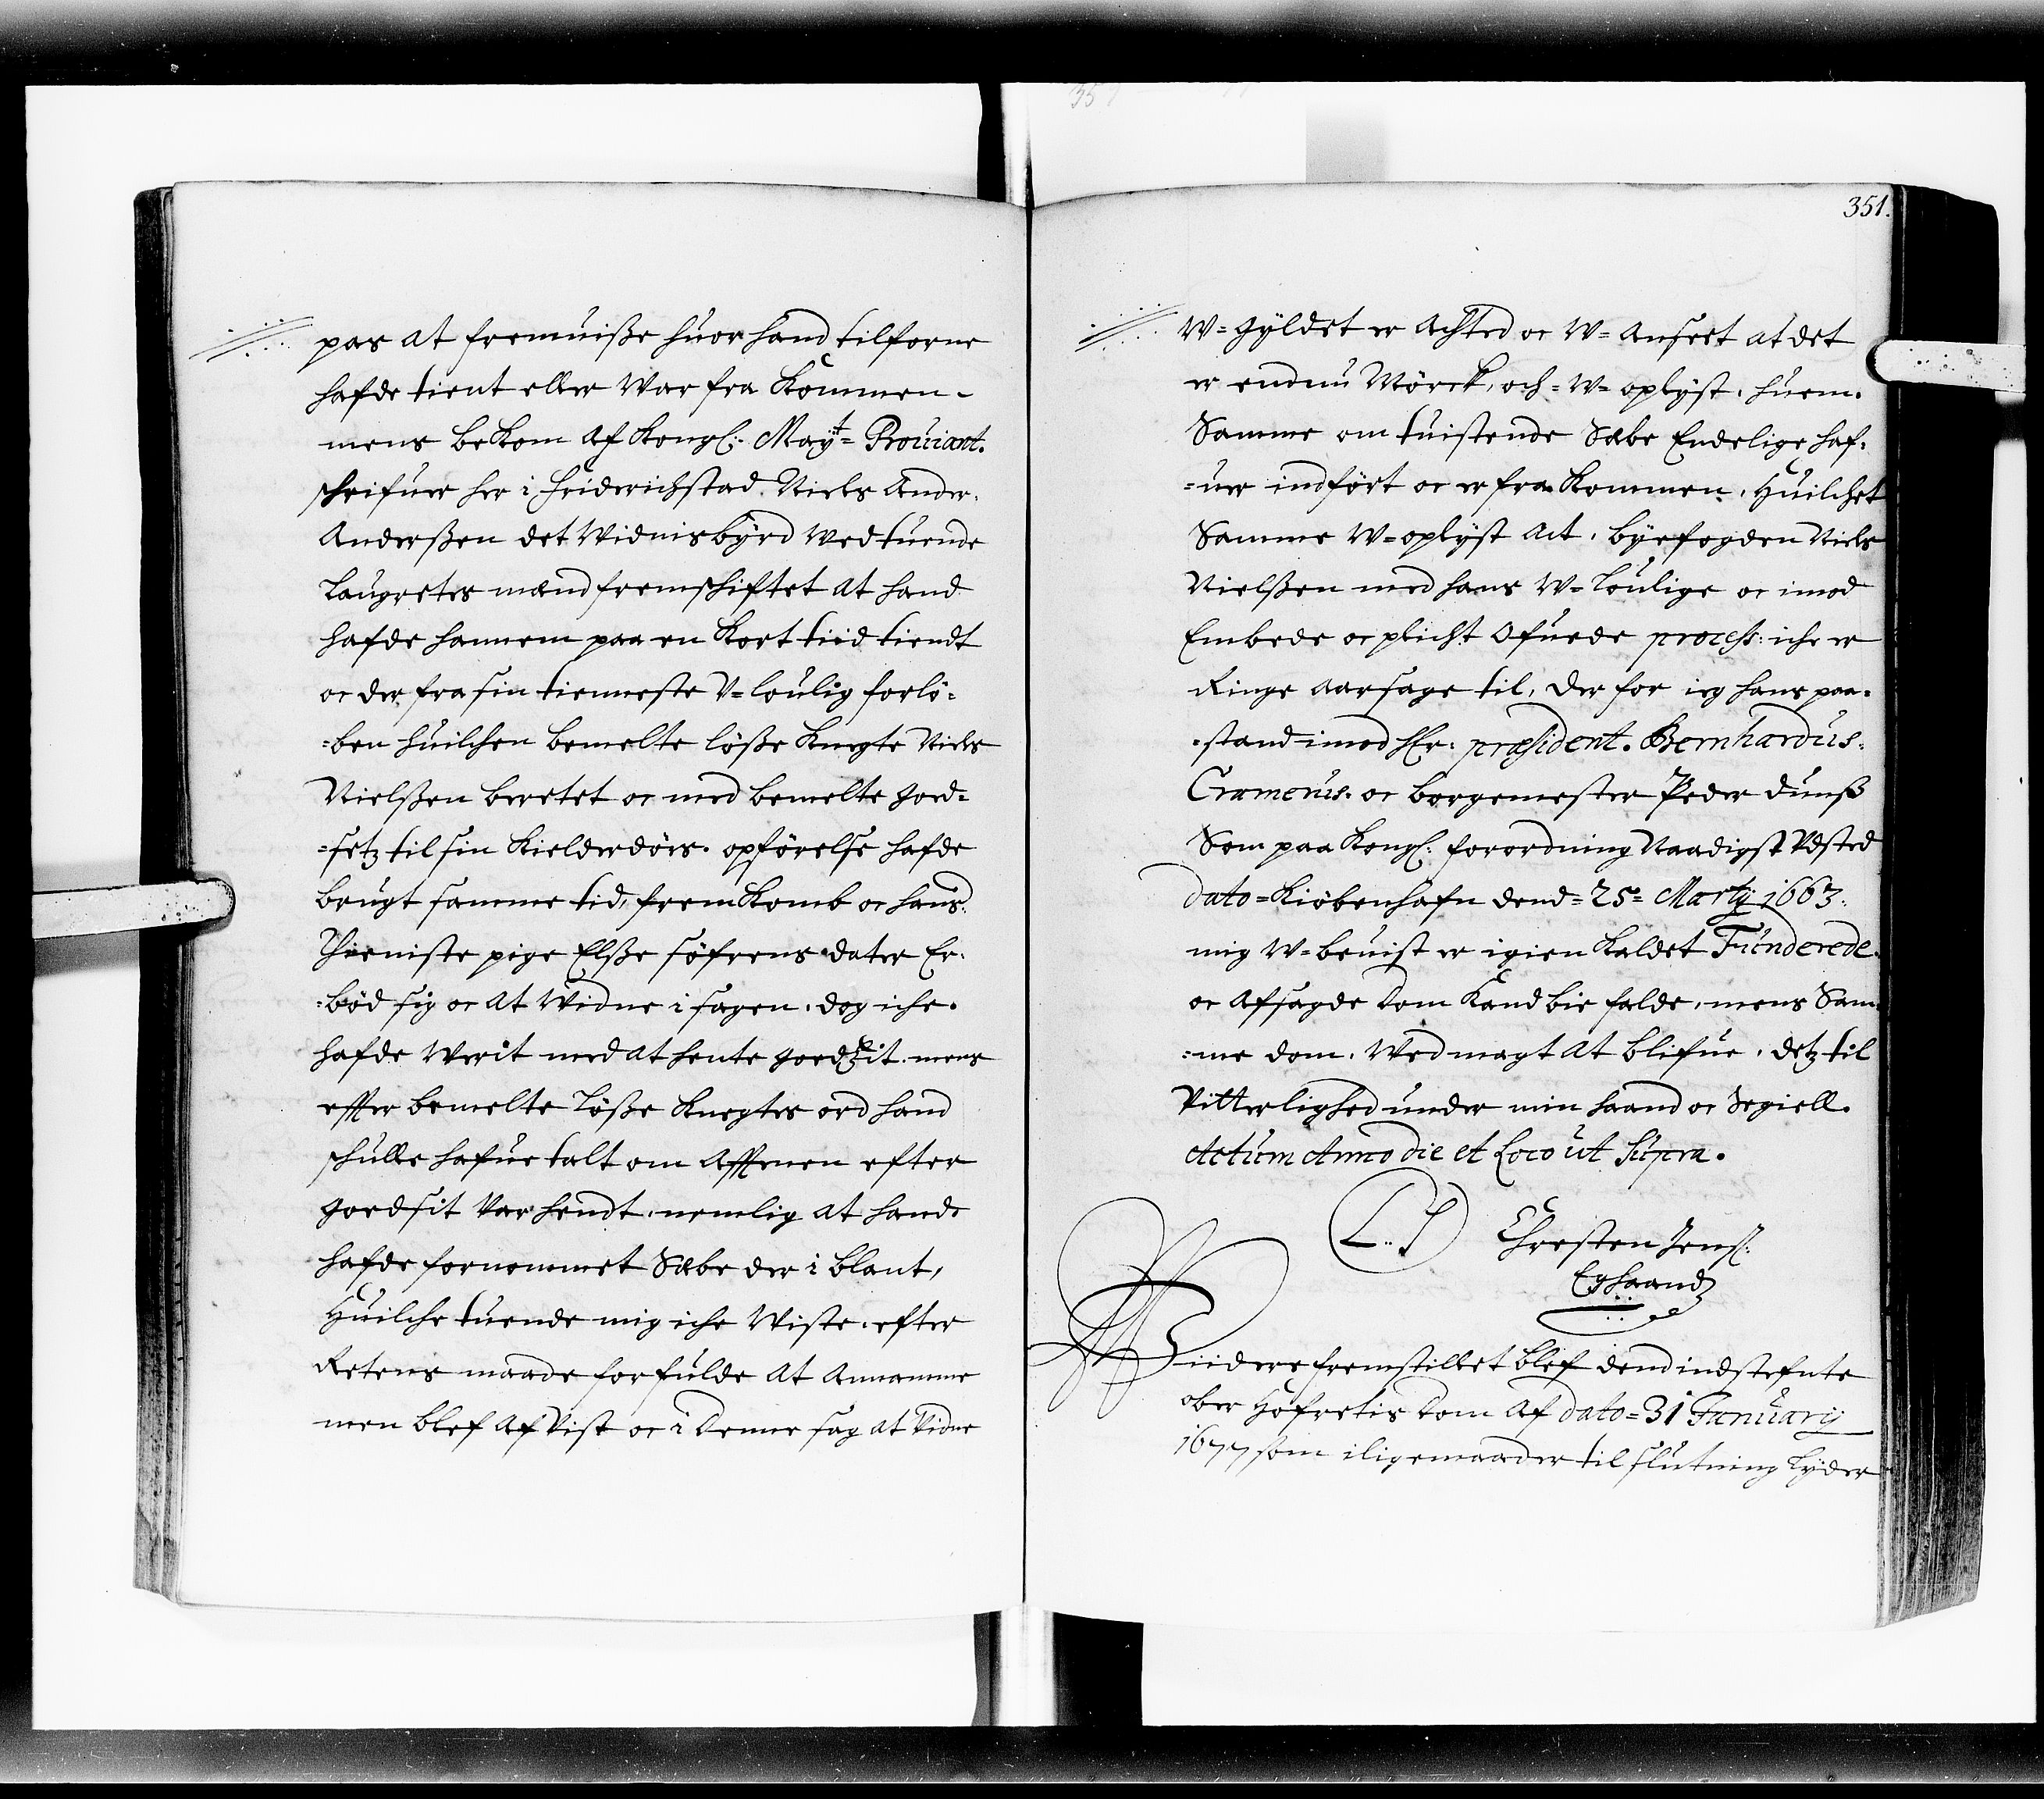 pas at fremuiße huor hand tilforne
hafde tient eller War fra Kommen-
mens beKom af Kongl: Mayt= Prouiant.
schrifuer her i friderichstad. Niels Ander.
Anderßen det Widnisbyrd Wed tuende
Laugrettes mænd fremschiftet at hand
hafde hannem paa en Kort tiid tiendt
oc der fra sin tienneste V= loulig forlö=
=ben huilchen bemelte löße Knegte Niels
Nielßen berettet oc med bemelte goed=
=setz til sin Kielderdörs. opförelse hafde
brugt samme tid, frem Komb oc hans.
Thieniste pige Elße söfrens dater Er.
=böd sig oc at Widne i sagen. dog iche.
hafde Werit med at hente goedzit. mens
effter bemelte Löße Knegtes ord hand
schulle hafue talt om Afftenen efter
goedsit Var hendt. nemlig at hande
hafde fornommet Sæbe der i blant,
Huilche tuende mig iche Wiste. efter
Retens maade forfulde at Annamme
men blef Af Vist oc i denne sag at Vidne
351.
W= gyldet er Achted oc W= anseet at det
er endnu Mörck, och = W= oplyst. huem.
Samme om tuistende Sæbe Endelige haf=
=uer indfört oc er fra Kommen. Huilchet
Samme W= oplyst Act. byefogden Niels
Nielßen med hans W= Loulige oc imod
Embede oc plicht Øfuede process: iche er
Ringe aarsage til, der for ieg hans paa=
=stand imod Hr: præsident. Bernhardus.
Cramerus. oc borgemester Peder dunß
Som paa Kongl: forordning Naadigst Vdsted
dato = Kiöbenhafn dend = 25= Martij 1663.
mig W= beuist er igien Kaldet Funderede.
oc afsagde dom Kand bie falde. mens Sam
=me dom. Wed magt at blifue. detz til
Vitterlighed under min haand oc Segiell.
Actum Anno die et Loco ut Supra.
L. S Chresten Jens:
Eghaand
Viidere fremstillet blef dend indstefnte
ober Hofretis dom Af dato = 31 Januarij
1677 som iligemaader til slutning Lyder